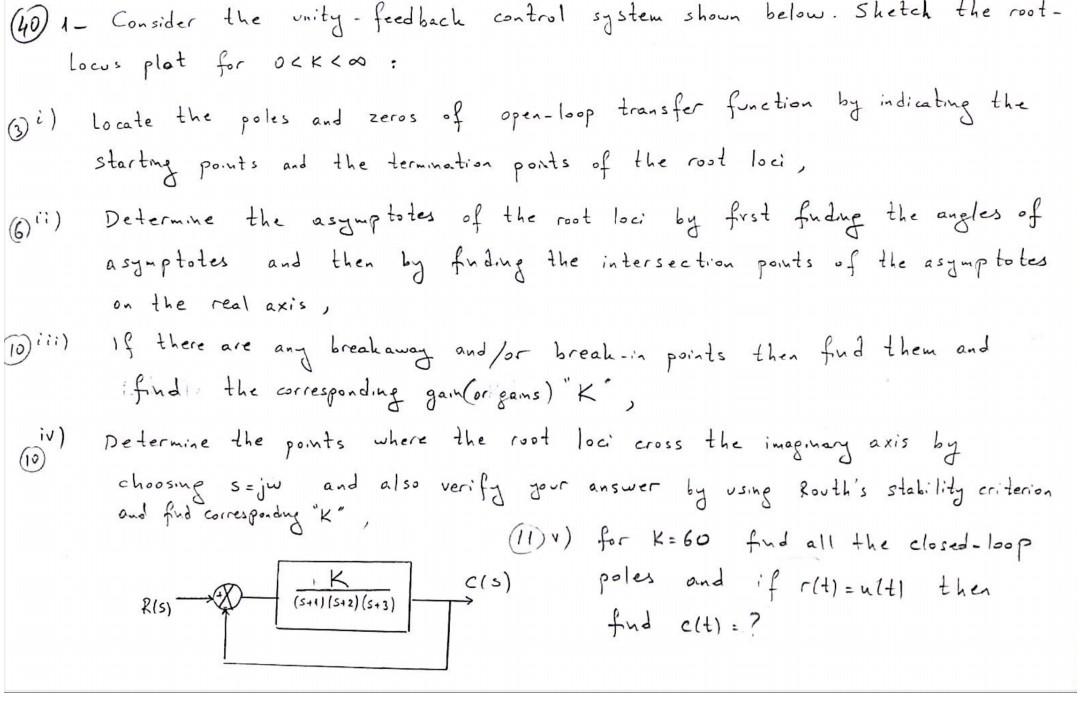 (40) 1- Consider the unity-feedback control system shown below. Sketch the root-
Locus plot for 0<K<∞ :
(3) i) Locate the poles and zeros of open-loop transfer function by indicating the
starting points and the termination points of the root loci,
(6) ii) Determine the asymptotes of the root loci by first finding the angles of
asymptotes and then by finding the intersection points of the asymptotes
on the real axis,
(10) iii) If there are any breakaway and/or break-in points then find them and
find the corresponding gain(or gains) "K",
(10) iv) Determine the points where the root loci cross the imaginary axis by
choosing s=jw and also verify your answer by using Routh's stability criterion
and find corresponding "K",
(11) v) for K=60 find all the closed-loop
poles and if r(t)=u(t) then
find c(t) = ?
R(s)
+
K
(s+1)(s+2)(s+3)
C(s)